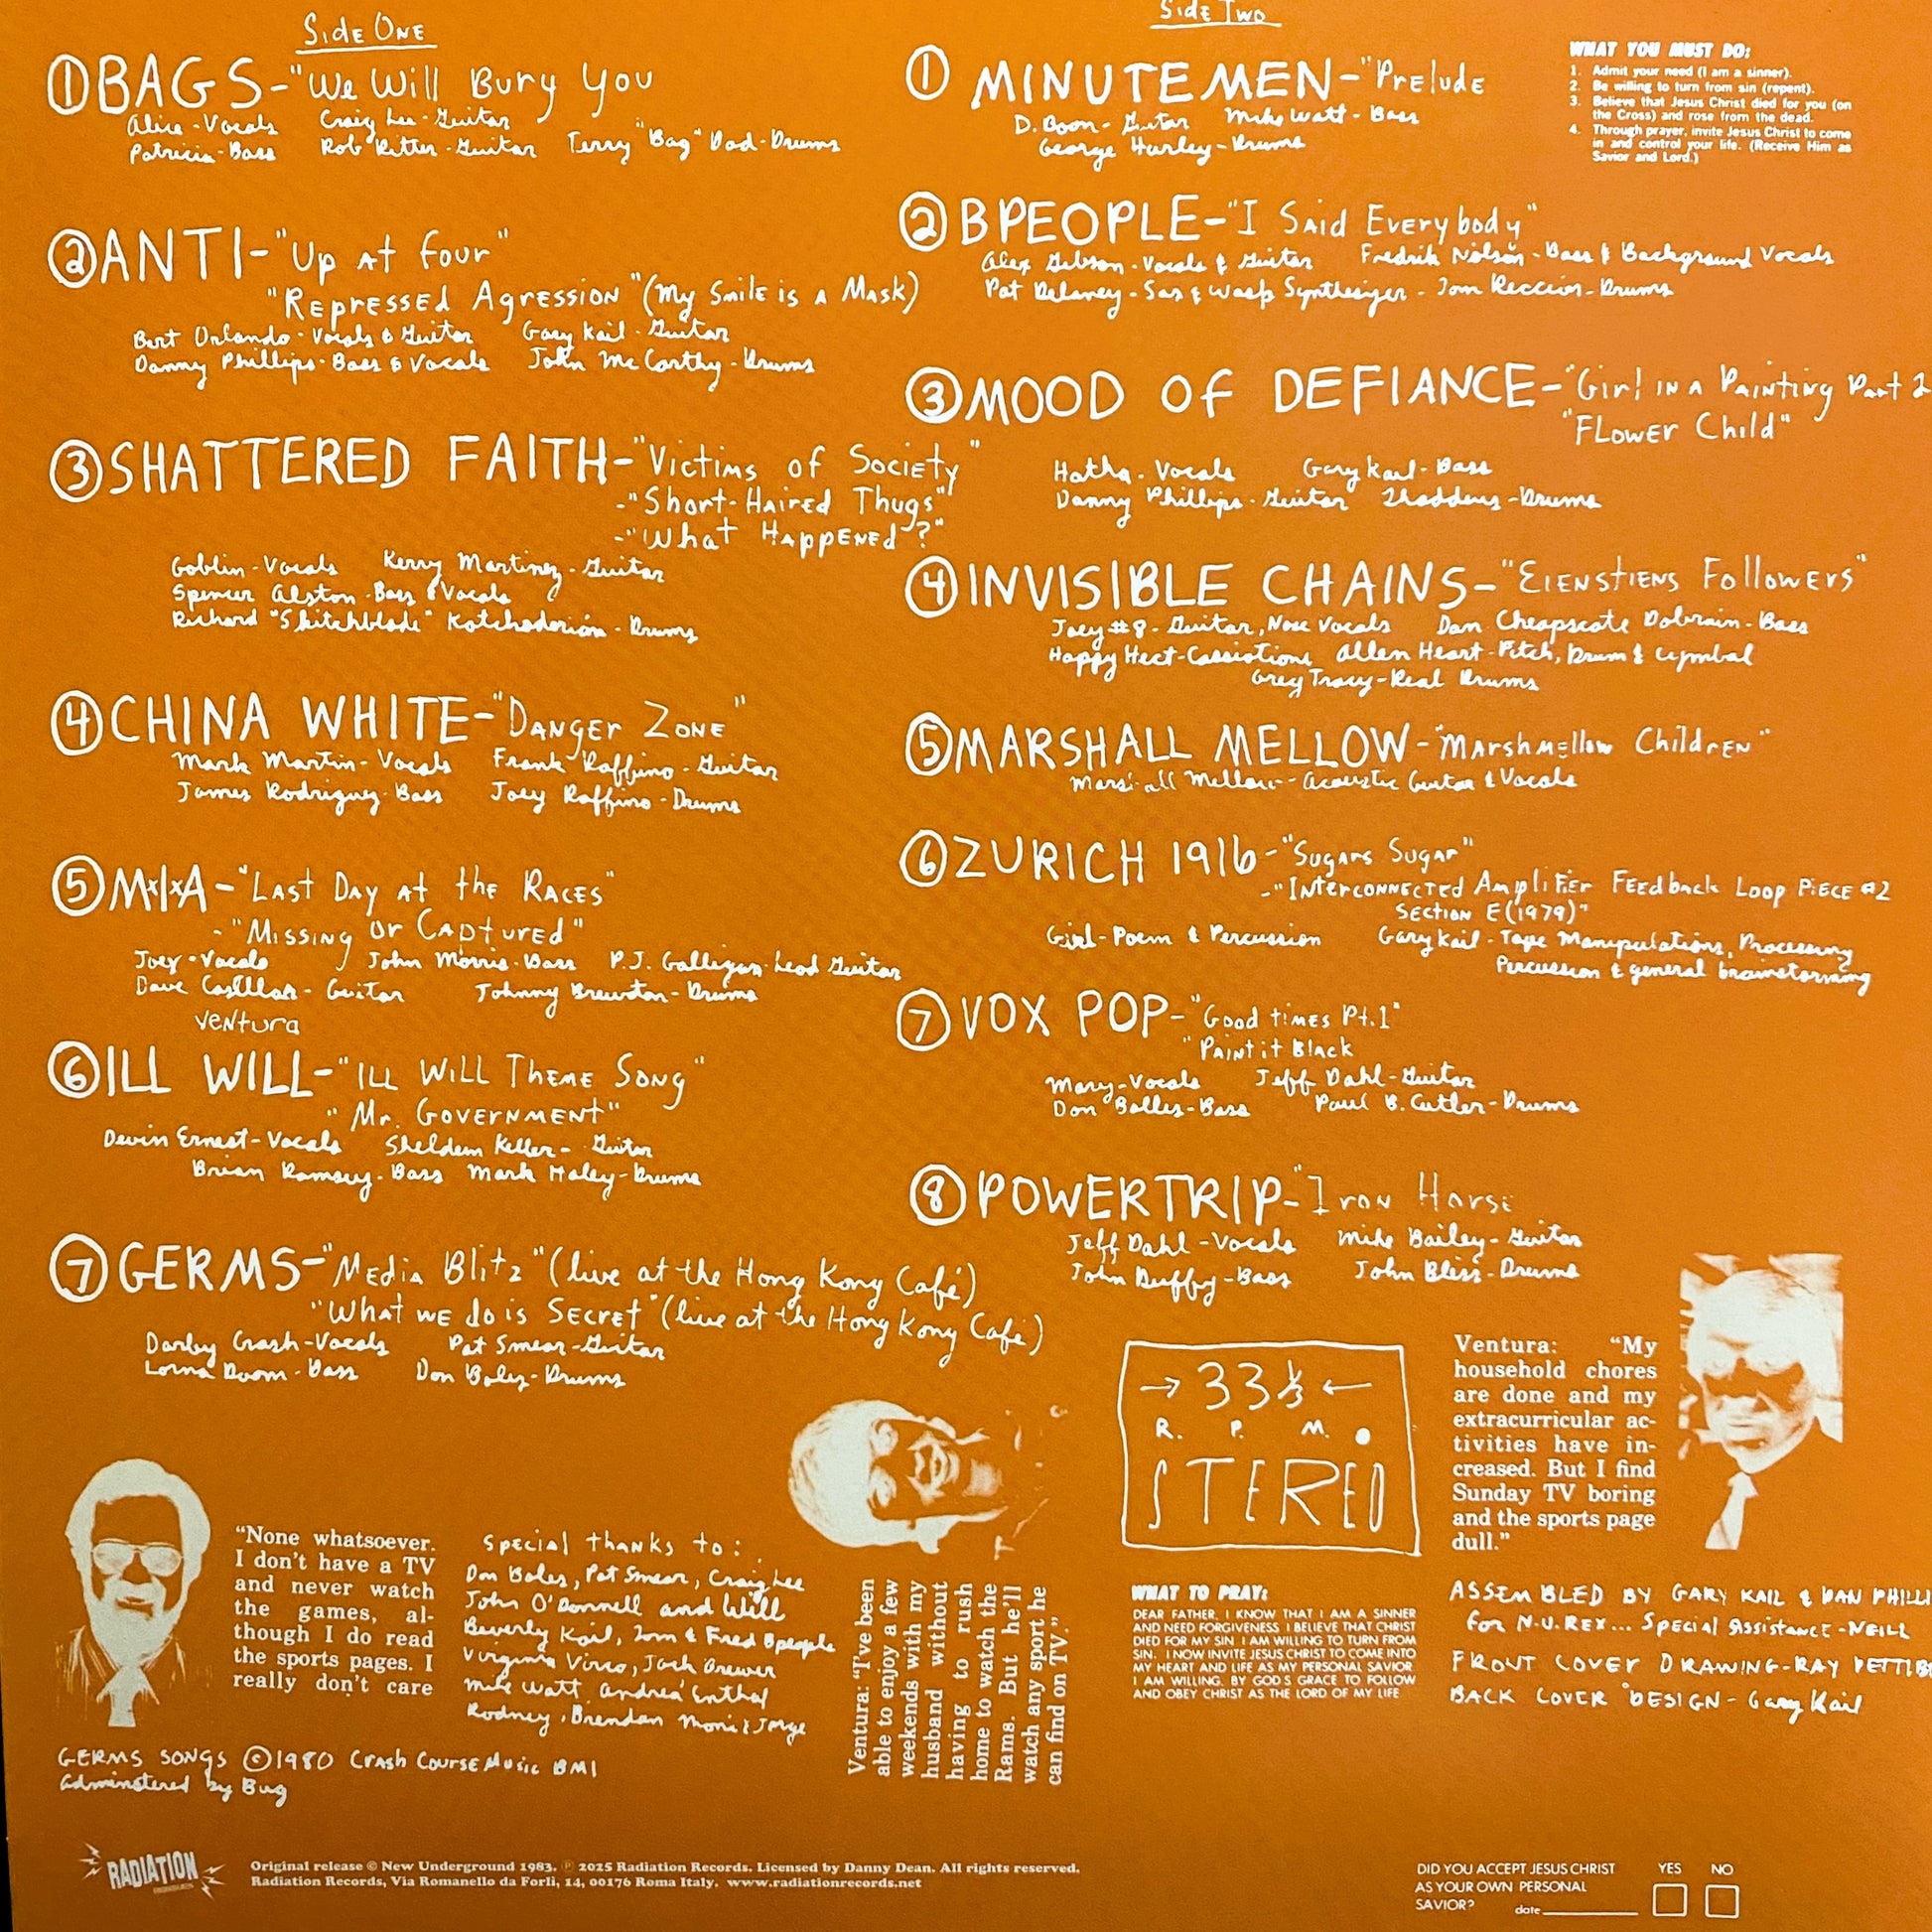 Side One
① BAGS-"We Will Bury You
Alice-Vocals Craig Lee-Guitar
Patricia-Bass Rob Ritter-Guitar Terry "Bag" Dad-Drums
② ANTI-"Up at four"
"Repressed Agression" (My Smile is a Mask)
Bert Orlando-Vocals & Guitar Gary Kail-Guitar
Danny Phillips-Bass & Vocals John McCarthy-Drums
③ SHATTERED FAITH-"Victims of Society"
-"Short-Haired Thugs"
-"What Happened"?
Goblin-Vocals Kerry Martinez-Guitar
Spencer Alston-Bass & Vocals
Richard "Skitchblade" Katchadorian-Drums
④ CHINA WHITE-"Danger Zone"
Mark Martin-Vocals Frank Ruffino-Guitar
James Rodriguez-Bass Joey Ruffino-Drums
⑤ M×I×A-"Last Day at the Races"
-"Missing or Captured"
Joey-Vocals John Morris-Bass P.J. Galligan-Lead Guitar
Dave Guitar Johnny Brewton-Drums
Ventura
⑥ ILL WILL-"Ill Will Theme Song"
"Mr. Government"
Devin Ernest-Vocals Sheldem Keller-Guitar
Brian Ramsey-Bass Mark Haley-Drums
⑦ GERMS-"Media Blitz" (live at the Hong Kong Café)
"What we do is Secret" (live at the Hong Kong Café)
Darby Crash-Vocals Pat Smear-Guitar
Lorna Doom-Bass Don Boles-Drums
"None whatsoever.
I don't have a TV
and never watch
the games, al-
though I do read
the sports pages. I
really don't care
Special thanks to:
Don Boles, Pat Smear, Craig Lee
John O'Donnell and Will
Beverly Kail, Tom & Fred Bpeople
Virginia Jack Brewer
Mike Watt. Andrea Enthal
Rodney, Brendan Moni & Jorge
Ventura: "I've been
able to enjoy a few
weekends with my
husband without
having to rush
home to watch the
Rams. But he'll
watch any sport he
can find on TV."
GERMS SONGS ©1980 Crash Course Music BMI
adminstered by Bug
Side Two
① MINUTEMEN-"Prelude
D. Boon-Guitar Mike Watt-Bass
George Hurley-Drums
WHAT YOU MUST DO:
1. Admit your need (I am a sinner).
2. Be willing to turn from sin (repent).
3. Believe that Jesus Christ died for you (on
the Cross) and rose from the dead.
4. Through prayer, invite Jesus Christ to come
in and control your life. (Receive Him as
Savior and Lord.)
② BPEOPLE-"I Said Everybody"
Alex Gibson-Vocals & Guitar Fredrik Nilsen-Bass & Background Vocals
Pat Delaney-Sax & Wasp Synthesizer-Tom Reccion-Drums
③ MOOD Of DEFIANCE-"Girl in a Painting Part 2
"Flower Child"
Hatha-Vocals Gary Kail-Bass
Danny Phillips-Guitar Thaddeus-Drums
④ INVISIBLE CHAINS-"Eienstiens Followers"
Joey #8-Guitar, Nose Vocals Dan Cheapscate Dobrain-Bass
Happy Hect-Cassiotione Allen Heart-Pitch, Drum & Cymbal
Greg Tracy-Real Drums
⑤ MARSHALL MELLOW-"Marshmellow Children"
Marshall Mellow-Acoustic Guitar & Vocals
⑥ ZURICH 1916-"Sugars Sugar"
-"Interconnected Amplifier Feedback Loop Piece #2
Section E (1979)"
Girl-Poem & Percussion Gary Kail-Tape Manipulations, Processing
Percussion & general brainstorming
⑦ VOX POP-"Good times Pt.1"
"Paint it Black
Mary-Vocals Jeff Dahl-Guitar
Don Bolles-Bass Paul B. Cutler-Drums
⑧ POWERTRIP-"Iron Horse
Jeff Dahl-Vocals Mike Bailey-Guitar
John Duffy-Bass John Bliss-Drums
→ 33⅓ ←
R. P. M.
STEREO
Ventura: "My
household chores
are done and my
extracurricular ac-
tivities have in-
creased. But I find
Sunday TV boring
and the sports page
dull."
WHAT TO PRAY:
DEAR FATHER, I KNOW THAT I AM A SINNER
AND NEED FORGIVENESS I BELIEVE THAT CHRIST
DIED FOR MY SIN I AM WILLING TO TURN FROM
SIN. I NOW INVITE JESUS CHRIST TO COME INTO
MY HEART AND LIFE AS MY PERSONAL SAVIOR
I AM WILLING, BY GOD S GRACE TO FOLLOW
AND OBEY CHRIST AS THE LORD OF MY LIFE
ASSEMBLED BY GARY KAIL & DAN PHILLI
for N.U.REX... Special Assistance-NEILL
FRONT COVER DRAWING-RAY PETTIB
BACK COVER DESIGN-Gary Kail
RADIATION
Original release © New Underground 1983. ℗ 2025 Radiation Records. Licensed by Danny Dean. All rights reserved.
Radiation Records, Via Romanello da Forlì, 14, 00176 Roma Italy. www.radiationrecords.net
DID YOU ACCEPT JESUS CHRIST
AS YOUR OWN PERSONAL
SAVIOR? date
YES NO